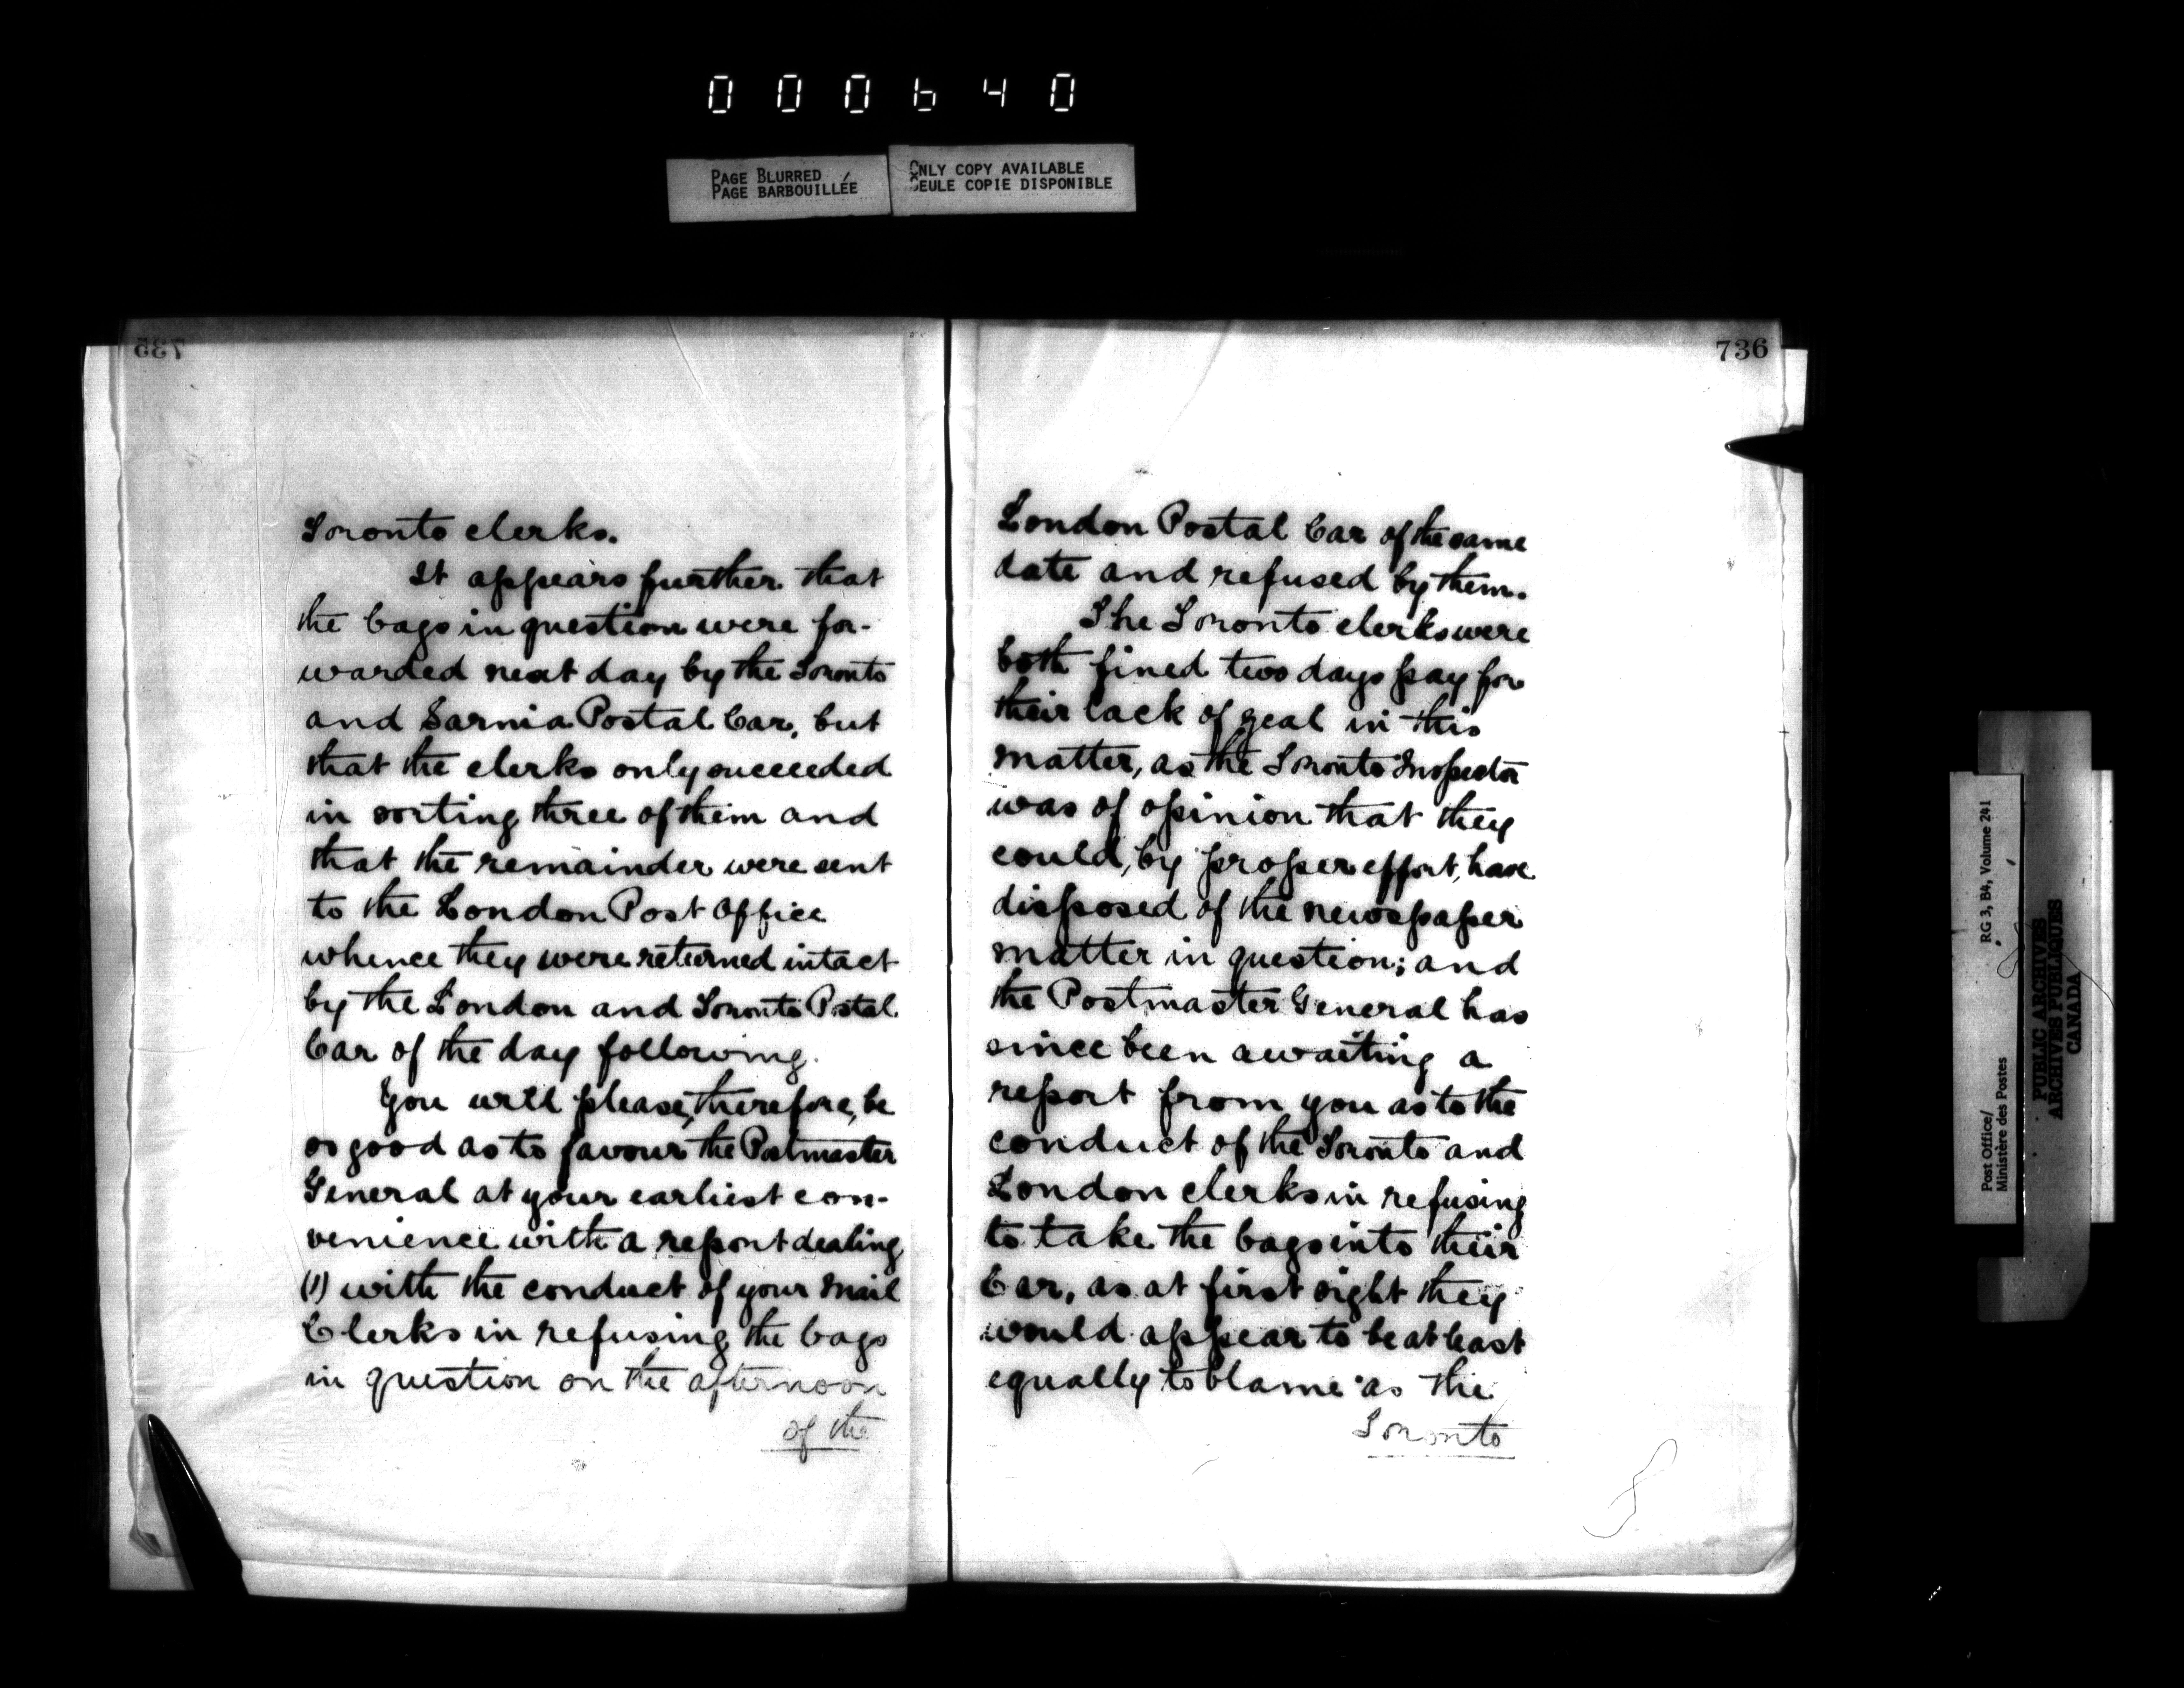 000640
PAGE BLURRED
PAGE BARBOUILLÉE
ONLY COPY AVAILABLE
SEULE COPIE DISPONIBLE
735
Toronto clerks.
It appears further that
the bags in question were for-
warded next day by the Toronto
and Sarnia Postal Car, but
that the clerks only succeeded
in sorting three of them and
that the remainder were sent
to the London Post Office
whence they were returned intact
by the London and Toronto Postal
Car of the day following.
You will please, therefore, be
so good as to favour the Postmaster
General at your earliest con-
venience with a report dealing
(1) with the conduct of your Mail
Clerks in refusing the bags
in question on the afternoon
of the
736
London Postal Car of the same
date and refused by them.
The Toronto clerks were
both fined two days pay for
their lack of zeal in this
matter, as the Toronto Inspector
was of opinion that they
could, by proper effort, have
disposed of the newspaper
matter in question; and
the Postmaster General has
since been awaiting a
report from you as to the
conduct of the Toronto and
London clerks in refusing
to take the bags into their
Car, as at first sight they
would appear to be at least
equally to blame as the
Toronto
Post Office/
Ministère des Postes
RG 3, B4, Volume 241
PUBLIC ARCHIVES
ARCHIVES PUBLIQUES
CANADA